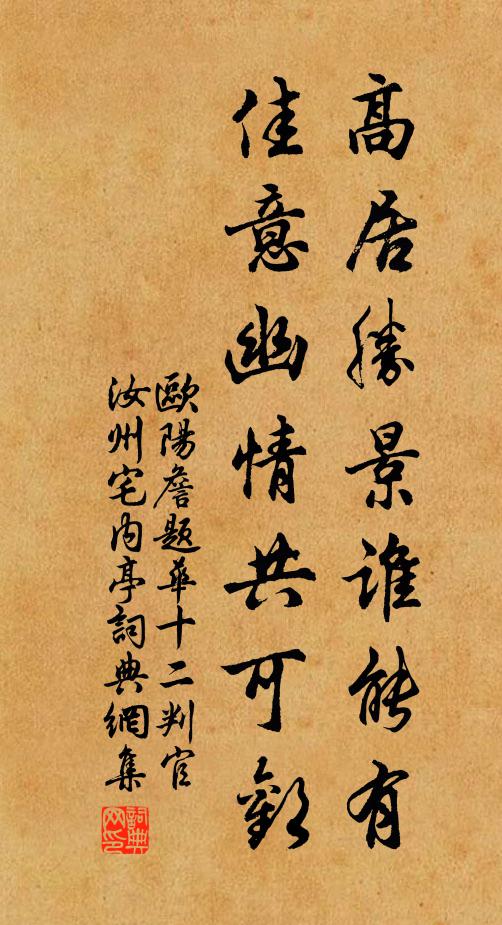 高居勝景誰能有
佳意幽情共可歡
歐陽詹題華十二判官
汝州宅内亭詞典網集
詞典
网印